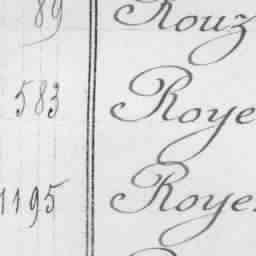 89 Rouz
583 Roye
1195 Roye